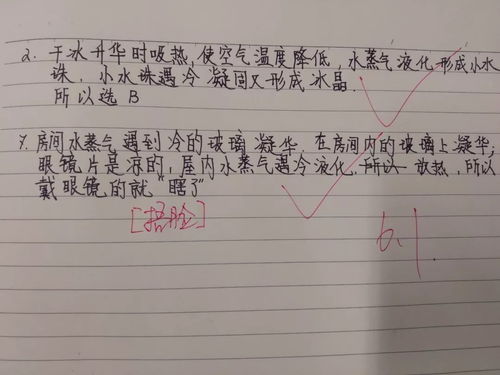 2. 干冰升华时吸热,使空气温度降低,水蒸气液化形成小水
珠,小水珠遇冷凝固又形成冰晶.
所以选B
7. 房间水蒸气遇到冷的玻璃凝华,在房间内的玻璃上凝华;
眼镜片是凉的,屋内水蒸气遇冷液化,所以 放热,所以
戴眼镜的就"瞎了"
[捂脸]
6.1